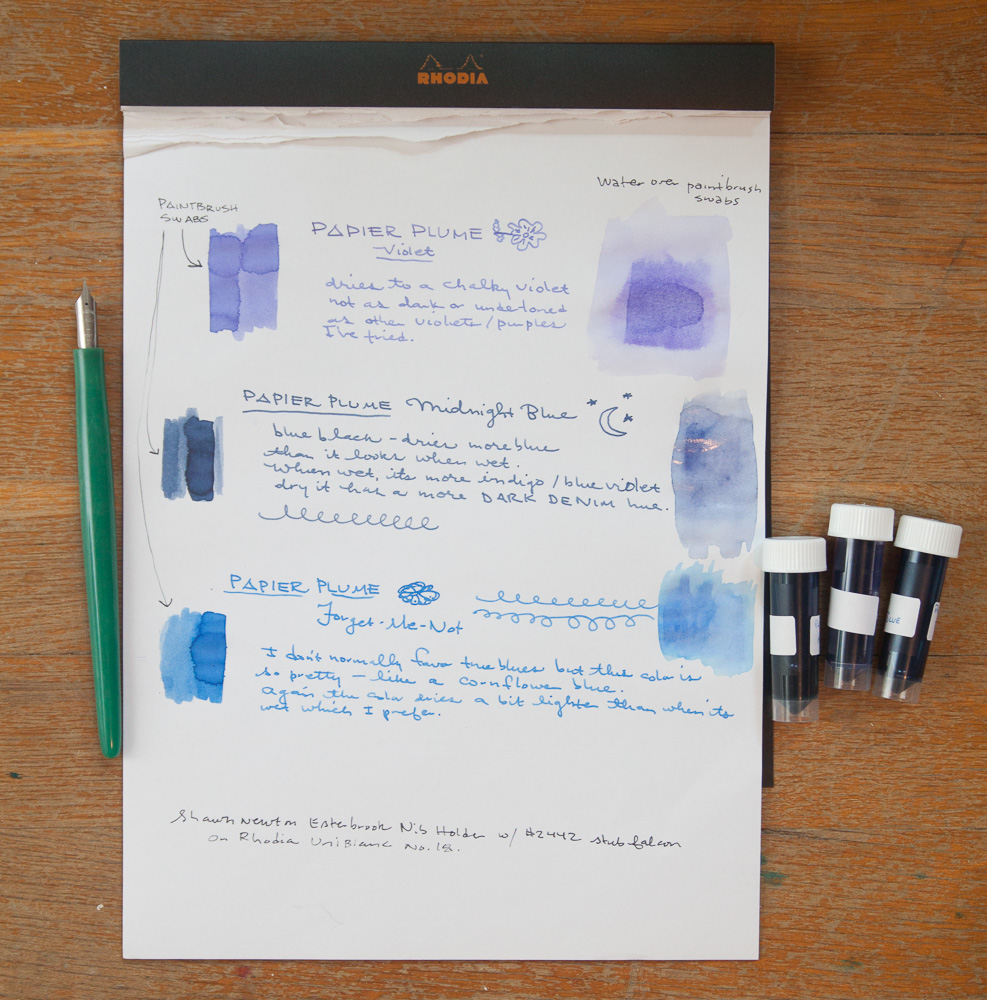 RHODIA
Water over paintbrush
swabs
PAINTBRUSH
SWABS
PAPIER PLUME
Violet
dries to a chalky violet
not as dark or undertoned
as other violets/purples
I've tried.
PAPIER PLUME Midnight Blue
blue black - dries more blue
than it looks when wet.
When wet, its more indigo/blue violet
dry it has a more DARK DENIM hue.
PAPIER PLUME
Forget-Me-Not
I don't normally favor true blues but this color is
so pretty - like a cornflower blue.
Again the color dries a bit lighter than when its
wet which I prefer.
Shawn Newton Esterbrook Nib Holder w/ #2442 stub falcon
on Rhodia UniBlank No. 18.
LUE